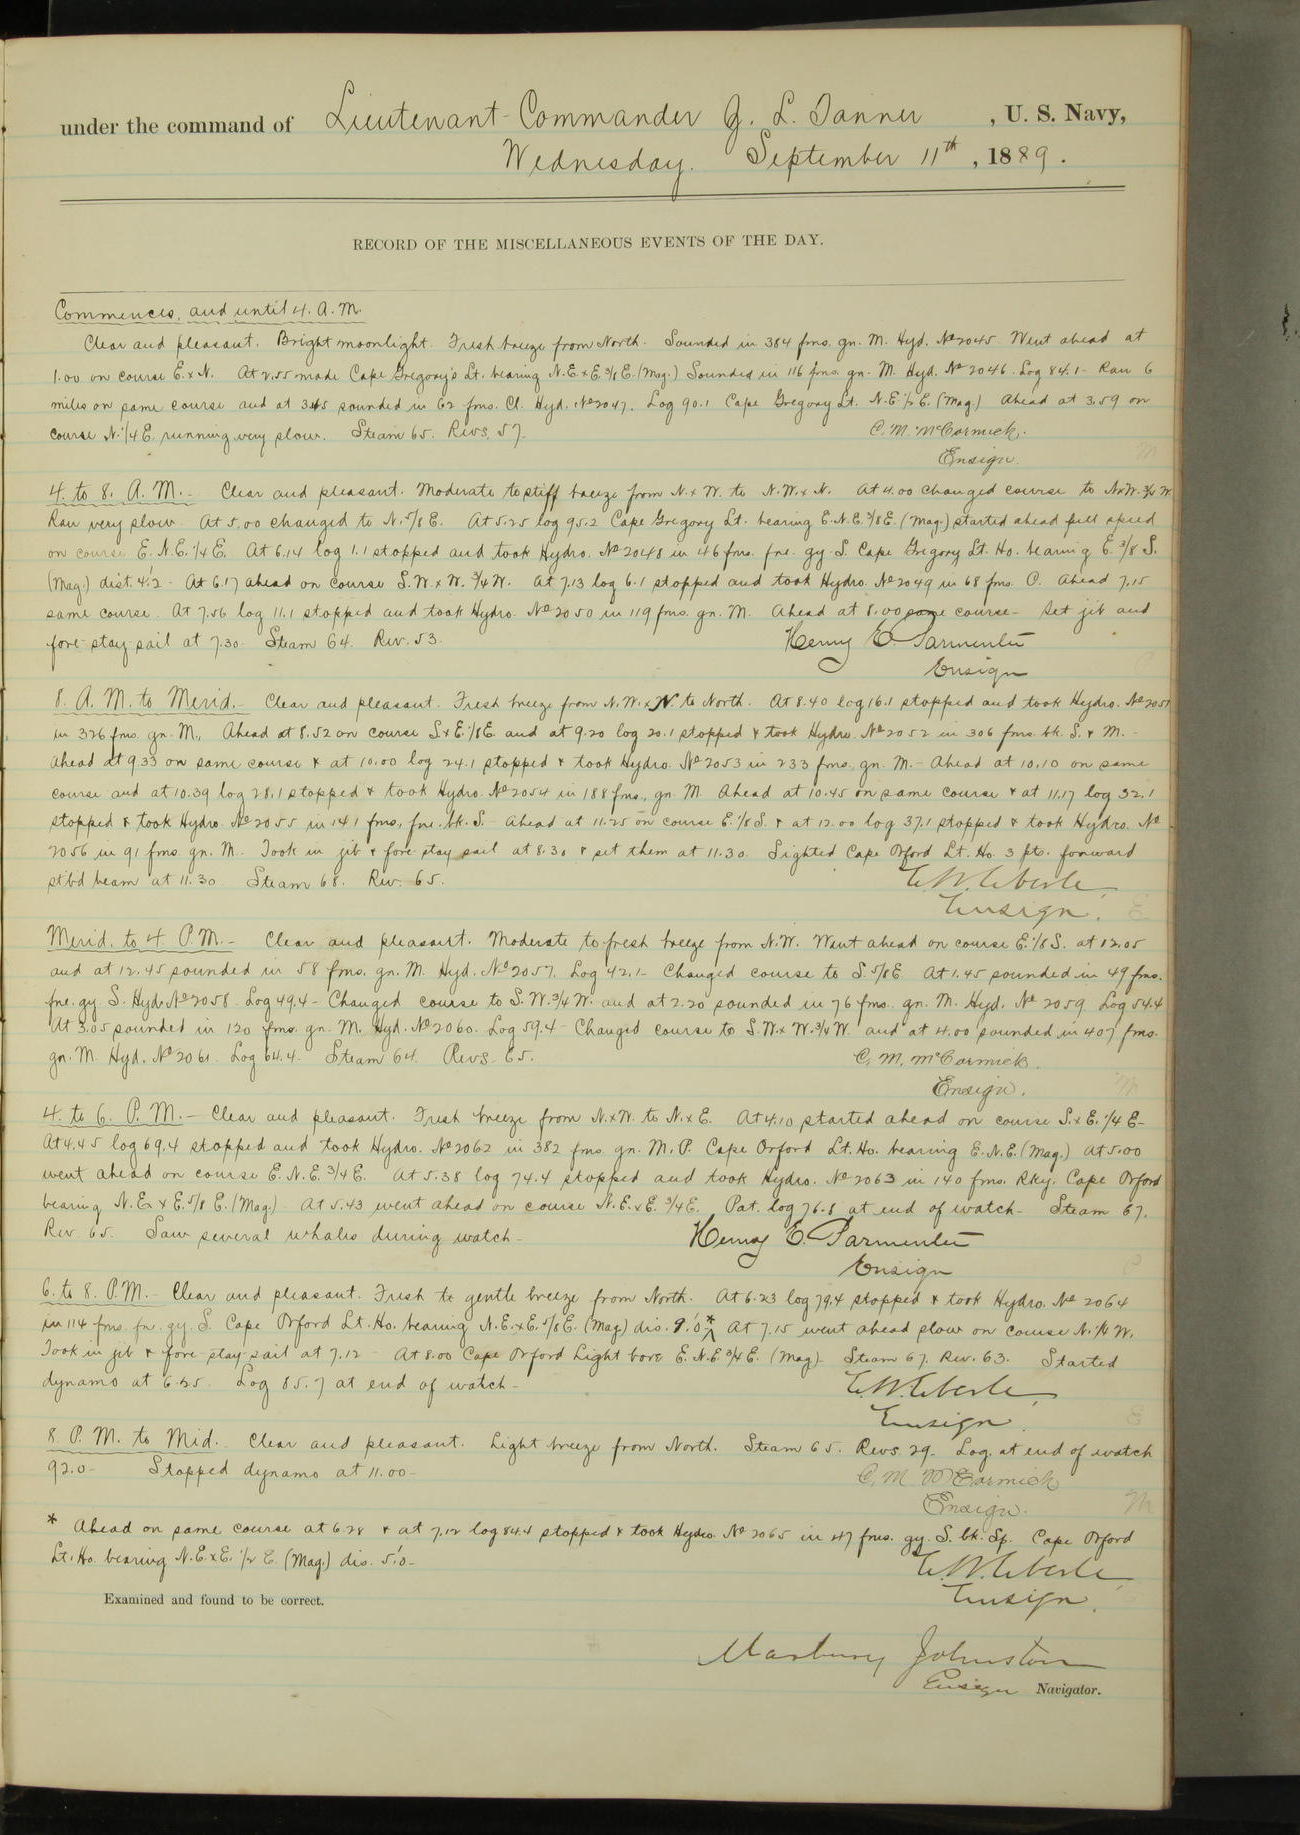 under the command of Lieutenant-Commander Z. L. Tanner, U. S. Navy,
Wednesday. September 11th, 1889.
RECORD OF THE MISCELLANEOUS EVENTS OF THE DAY.
Commences, and until 4. A. M.
Clear and pleasant. Bright moonlight. Fresh breeze from North. Sounded in 384 fms. gn. M. Hyd. No 2045. Went ahead at
1.00 on course E.xN. At 2.55 made Cape Gregory's Lt. bearing N.E.xE.3/8E.(Mag.) Sounded in 116 fms. gn. M. Hyd. No 2046. Log 84.1 - Ran 6
miles on same course and at 3.45 sounded in 62 fms. Cl. Hyd. No 2047. Log 90.1 Cape Gregory Lt. N.E.1/2E. (Mag.) Ahead at 3.59 on
course N.1/4E. running very slow. Steam 65. Revs. 57.
C. M. McCormick.
Ensign.
4. to 8. A. M. - Clear and pleasant. Moderate to stiff breeze from N.x W. to N.W.x N. At 4.00 changed course to NxW.3/4 W.
Ran very slow. At 5.00 changed to N.5/8E. At 5.25 log 95.2 Cape Gregory Lt. bearing E.N.E.3/8E.(Mag.) started ahead full speed
on course E.N.E.1/4E. At 6.14 log 1.1 stopped and took Hydro. No 2048 in 46 fms. fne. gy. S. Cape Gregory Lt. Ho. bearing E.3/8 S.
(Mag.) dist. 4'.2 - At 6.17 ahead on course S.W.x W.3/4W. At 7.13 log 6.1 stopped and took Hydro. No 2049 in 68 fms. C. Ahead 7.15
same course. At 7.56 log 11.1 stopped and took Hydro. No 2050 in 119 fms. gn. M. Ahead at 8.00 same course - Set jib and
fore-stay sail at 7.30. Steam 64. Rev. 53.
Henry E. Parmenter
Ensign
8. A. M. to Merid. - Clear and pleasant. Fresh breeze from N.W.xN. to North. At 8.40 log 16.1 stopped and took Hydro. No 2051
in 326 fms. gn. M., Ahead at 8.52 on course SxE.1/8E and at 9.20 log 20.1 stopped & took Hydro. No 2052 in 306 fms. bk. S. & M. -
Ahead at 9.33 on same course & at 10.00 log 24.1 stopped & took Hydro. No 2053 in 233 fms., gn. M. - Ahead at 10.10 on same
course and at 10.39 log 28.1 stopped & took Hydro. No 2054 in 188 fms., gn. M. Ahead at 10.45 on same course & at 11.17 log 32.1
stopped & took Hydro. No 2055 in 141 fms., fne. bk. S. - Ahead at 11.25 on course E.1/8S. & at 12.00 log 37.1 stopped & took Hydro. No
2056 in 91 fms. gn. M. Took in jib & fore stay sail at 8.30 & set them at 11.30. Sighted Cape Orford Lt. Ho. 3 pts. forward
stbd beam at 11.30. Steam 68. Rev. 65.
E. W. Eberle,
Ensign.
Merid. to 4 P.M. - Clear and pleasant. Moderate to fresh breeze from N.W. Went ahead on course E.1/8S. at 12.05
and at 12.45 sounded in 58 fms. gn. M. Hyd. No 2057. Log 42.1 - Changed course to S.5/8E. At 1.45 sounded in 49 fms.
fne. gy. S. Hyd. No 2058. Log 49.4 - Changed course to S.W.3/4W. and at 2.20 sounded in 76 fms. gn. M. Hyd. No 2059. Log 54.4
At 3.05 sounded in 120 fms. gn. M. Hyd. No 2060. Log 59.4 - Changed course to S.W.x W.3/4W. and at 4.00 sounded in 407 fms.
gn. M. Hyd. No 2061. Log 64.4. Steam 64. Revs. 65.
C. M. McCormick.
Ensign.
4. to 6. P. M. - Clear and pleasant. Fresh breeze from N.xW. to N.x E. At 4.10 started ahead on course S.x E.1/4 E -
At 4.45 log 69.4 stopped and took Hydro. No 2062 in 382 fms. gn. M. P. Cape Orford Lt. Ho. bearing E.N.E.(Mag.) At 5.00
went ahead on course E.N.E.3/4E. At 5.38 log 74.4 stopped and took Hydro. No 2063 in 140 fms. Rky. Cape Orford
bearing N.E.x E.5/8 E.(Mag.) At 5.43 went ahead on course N.E.xE.3/4E. Pat. log 76.8 at end of watch - Steam 67.
Rev 65. Saw several whales during watch -
Henry E. Parmenter
Ensign
6. to 8. P.M. - Clear and pleasant. Fresh to gentle breeze from North. At 6.23 log 79.4 stopped & took Hydro. No 2064
in 114 fms. fn. gy. S. Cape Orford Lt. Ho. bearing N.E.xE.5/8E. (Mag) dis. 9'.0 * At 7.15 went ahead slow on course W.
Took in jib & fore-stay sail at 7.12 - At 8.00 Cape Orford Light bore E.N.E.3/4E. (Mag.) Steam 67. Rev. 63. Started
dynamo at 6.25. Log 85.7 at end of watch -
E. W. Eberle,
Ensign.
8. P. M. to Mid. Clear and pleasant. Light breeze from North. Steam 65. Revs. 29. Log. at end of watch
92.0 - Stopped dynamo at 11.00 -
C. M. McCormick
Ensign.
* Ahead on same course at 6.28 & at 7.12 log 84.4 stopped & took Hydro. No 2065 in 47 fms. gy. S. bk. Sp. Cape Orford
Lt. Ho. bearing N.E.xE.1/2 E. (Mag.) dis. 5'.0 -
E. W. Eberle,
Ensign.
Examined and found to be correct.
Marbury Johnston
Ensign Navigator.